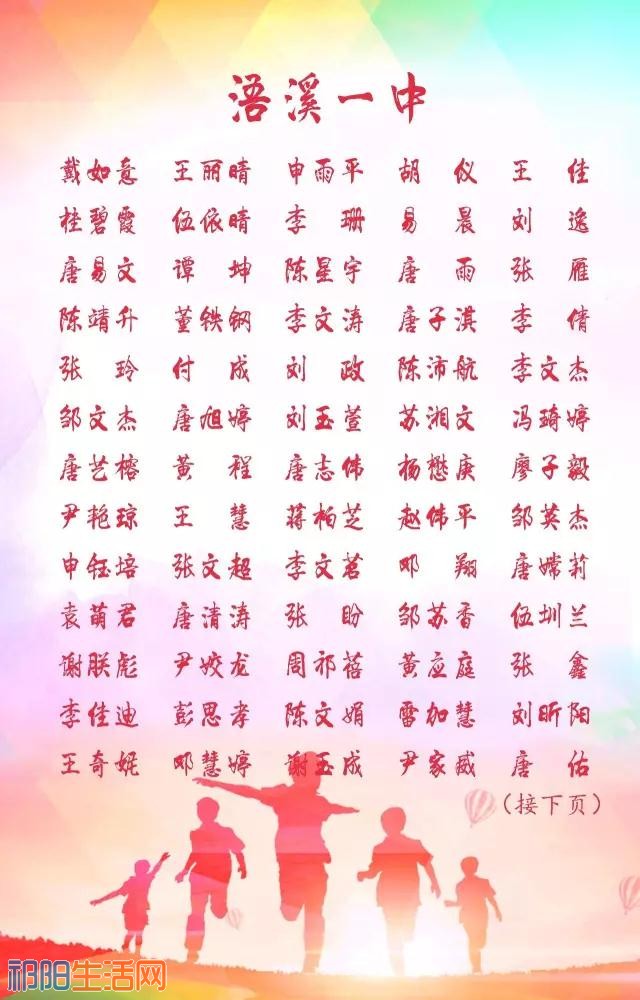 浯溪一中
戴如意 王丽晴 申雨平 胡仪 王佳
桂碧霞 伍依晴 李珊 易晨 刘逸
唐易文 谭坤 陈星宇 唐雨 张雁
陈靖升 董铁钢 李文涛 唐子淇 李倩
张玲 付成 刘政 陈沛航 李文杰
邹文杰 唐旭婷 刘玉萱 苏湘文 冯琦婷
唐艺榕 黄程 唐志伟 杨懋庚 廖子毅
尹艳琼 王慧 蒋柏芝 赵伟平 邹英杰
申钰培 张文超 李文茗 邓翔 唐嫦莉
袁萌君 唐清涛 张盼 邹苏香 伍圳兰
谢朕彪 尹姣龙 周祁蓓 黄应庭 张鑫
李佳迪 彭思孝 陈文娟 雷加慧 刘昕阳
王奇妮 邓慧婷 谢玉成 尹家威 唐佑
（接下页）
祁阳生活网